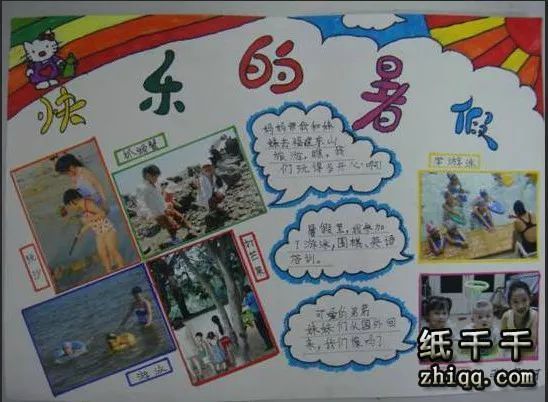 快乐的暑假
抓螃蟹
学游泳
妈妈带我和妹
妹去福建东山
旅游，瞧，我
们玩得多开心啊！
玩沙
打芒果
暑假里，我参加
了游泳，围棋、英语
培训。
可爱的弟弟
妹妹们从国外回
来，我们像吗？
游泳
纸千千
zhiqq.com